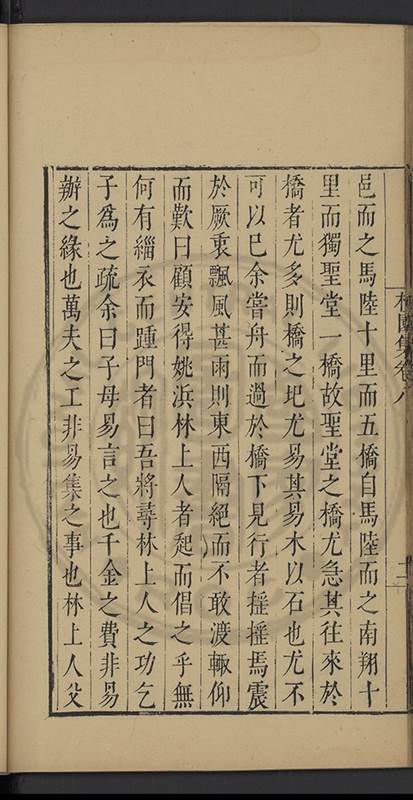 邑而之馬陸十里而五橋自馬陸而之南翔十
里而獨聖堂一橋故聖堂之橋尤急其往來於
橋者尤多則橋之圯尤易其易木以石也尤不
可以已余嘗舟而過於橋下見行者揺揺焉震
於厥衷飄風甚雨則東西隔絕而不敢渡輙仰
而歎曰顧安得姚浜林上人者起而倡之乎無
何有緇衣而踵門者曰吾將尋林上人之功乞
子爲之疏余曰子毋易言之也千金之費非易
辦之緣也萬夫之工非易集之事也林上人父